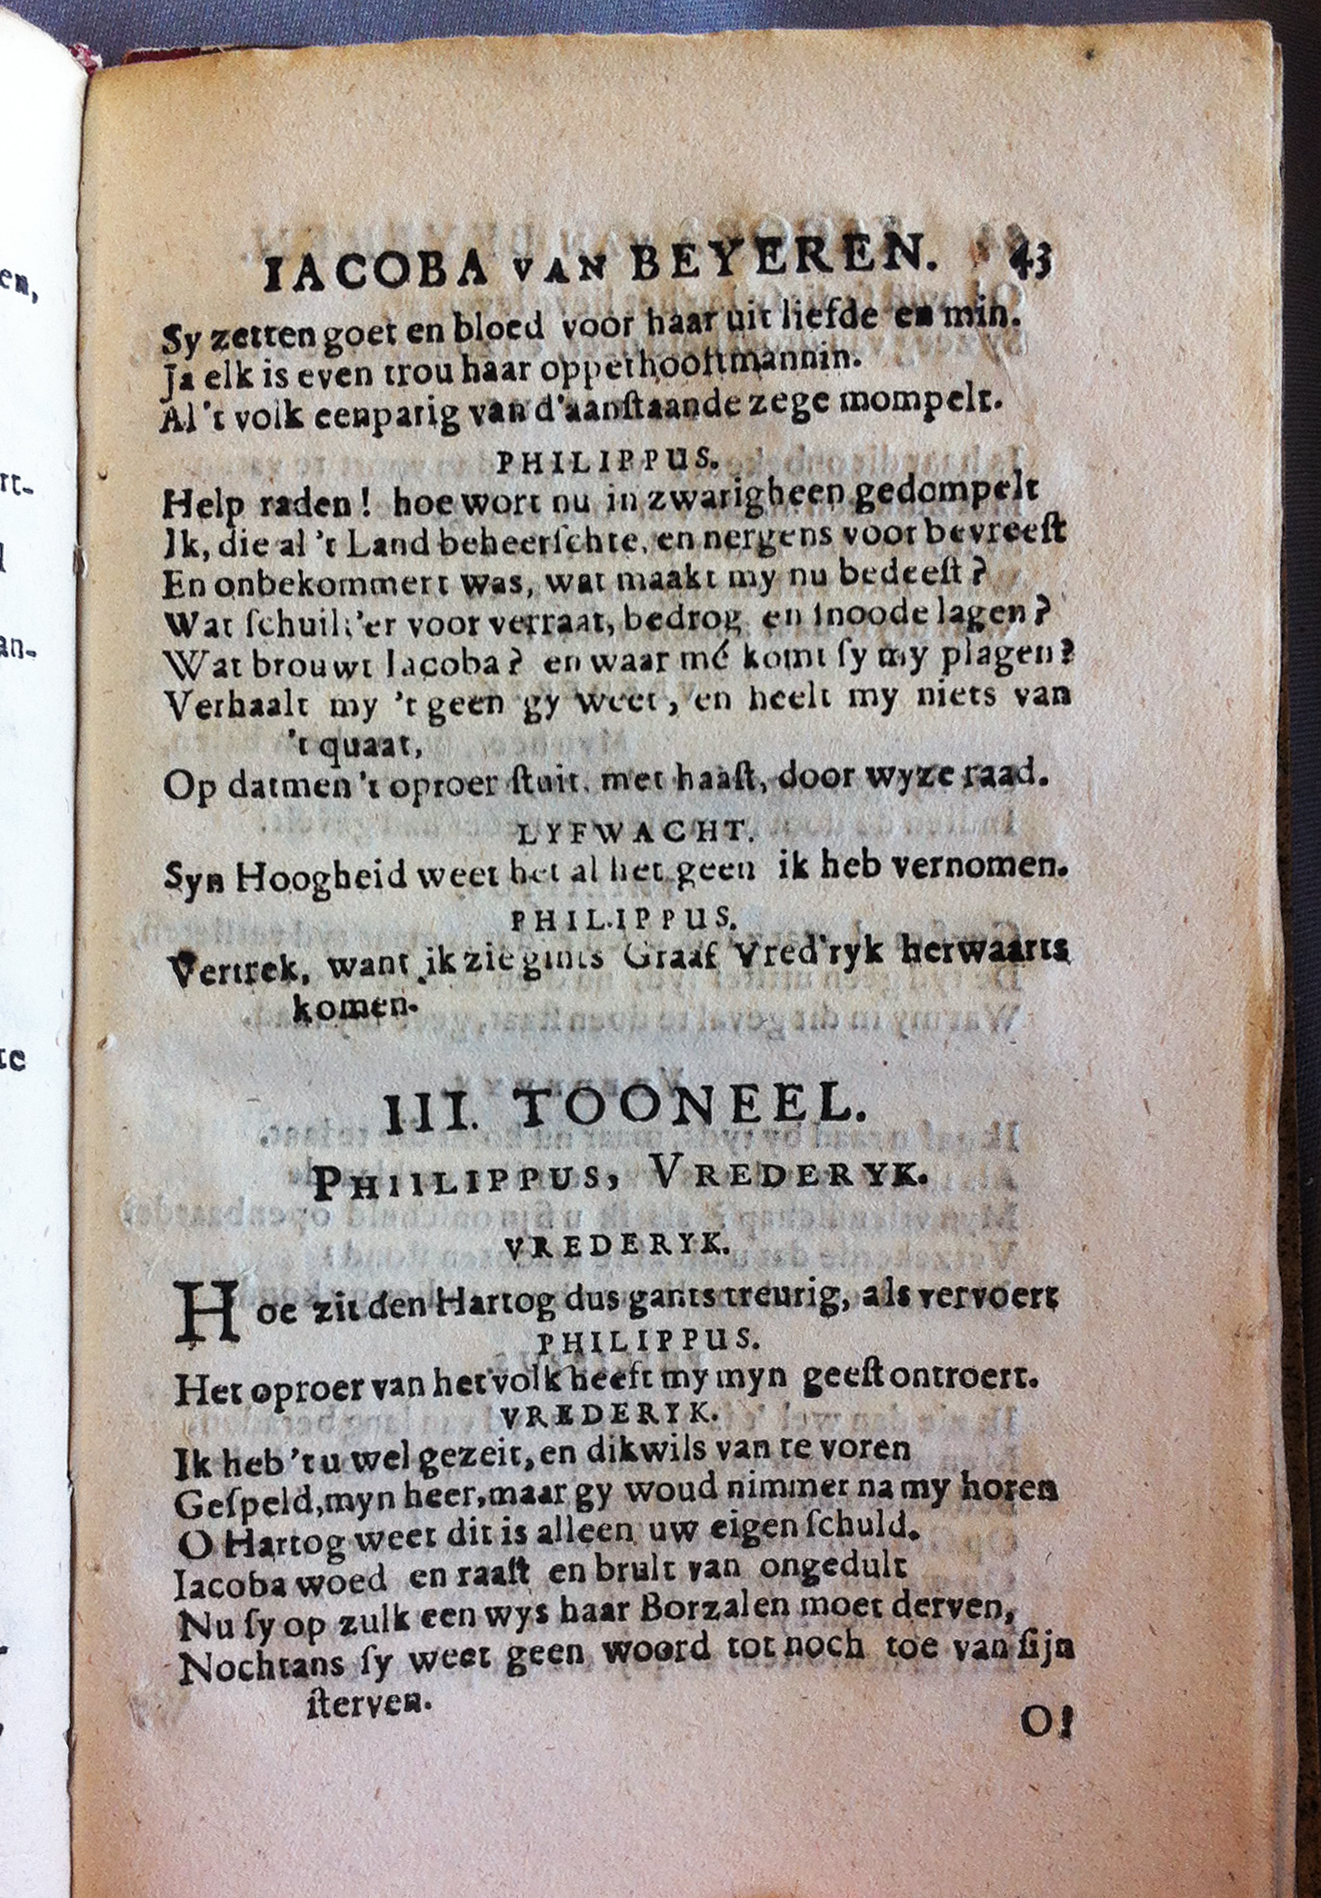 IACOBA VAN BEYEREN. 43
Sy zetten goet en bloed voor haar uit liefde en min.
Ja elk is even trou haar oppethooftmannin.
Al 't volk eenparig van d'aanſtaande zege mompelt.
PHILIPPUS.
Help raden! hoe wort nu in zwarigheen gedompelt
Ik, die al 't Land beheerſchte, en nergens voor bevreeſt
En onbekommert was, wat maakt my nu bedeeſt?
Wat ſchuilt'er voor verraat, bedrog en ſnoode lagen?
Wat brouwt Iacoba? en waar mé komt ſy my plagen?
Verhaalt my 't geen gy weet, en heelt my niets van
't quaat,
Op datmen 't oproer ſtuit, met haaſt, door wyze raad.
LYFWACHT.
Syn Hoogheid weet het al het geen ik heb vernomen.
PHILIPPUS.
Vertrek, want ik zie gints Graaf Vred'ryk herwaarts
komen.
III. TOONEEL.
PHIILIPPUS, VREDERYK.
VREDERYK.
Hoe zit den Hartog dus gants treurig, als vervoert
PHILIPPUS.
Het oproer van het volk heeft my myn geeſt ontroert.
VREDERYK.
Ik heb 't u wel gezeit, en dikwils van te voren
Geſpeld, myn heer, maar gy woud nimmer na my horen
O Hartog weet dit is alleen uw eigen ſchuld.
Iacoba woed en raaſt en brult van ongedult
Nu ſy op zulk een wys haar Borzalen moet derven,
Nochtans ſy weet geen woord tot noch toe van ſijn
ſterven.
O!
en,
rt-
an-
te